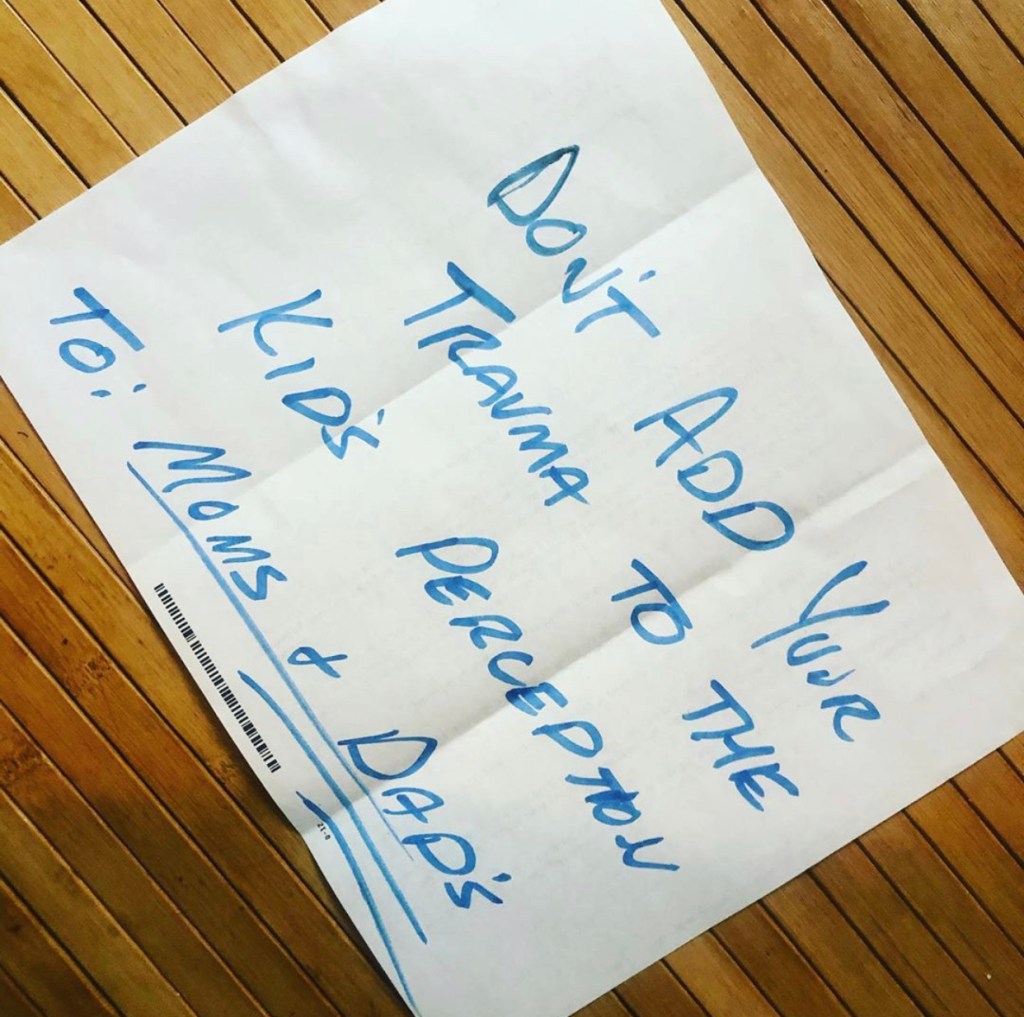 DON'T ADD YOUR
TRAUMA TO THE
KID'S PERCEPTION
TO: MOMS + DAD'S